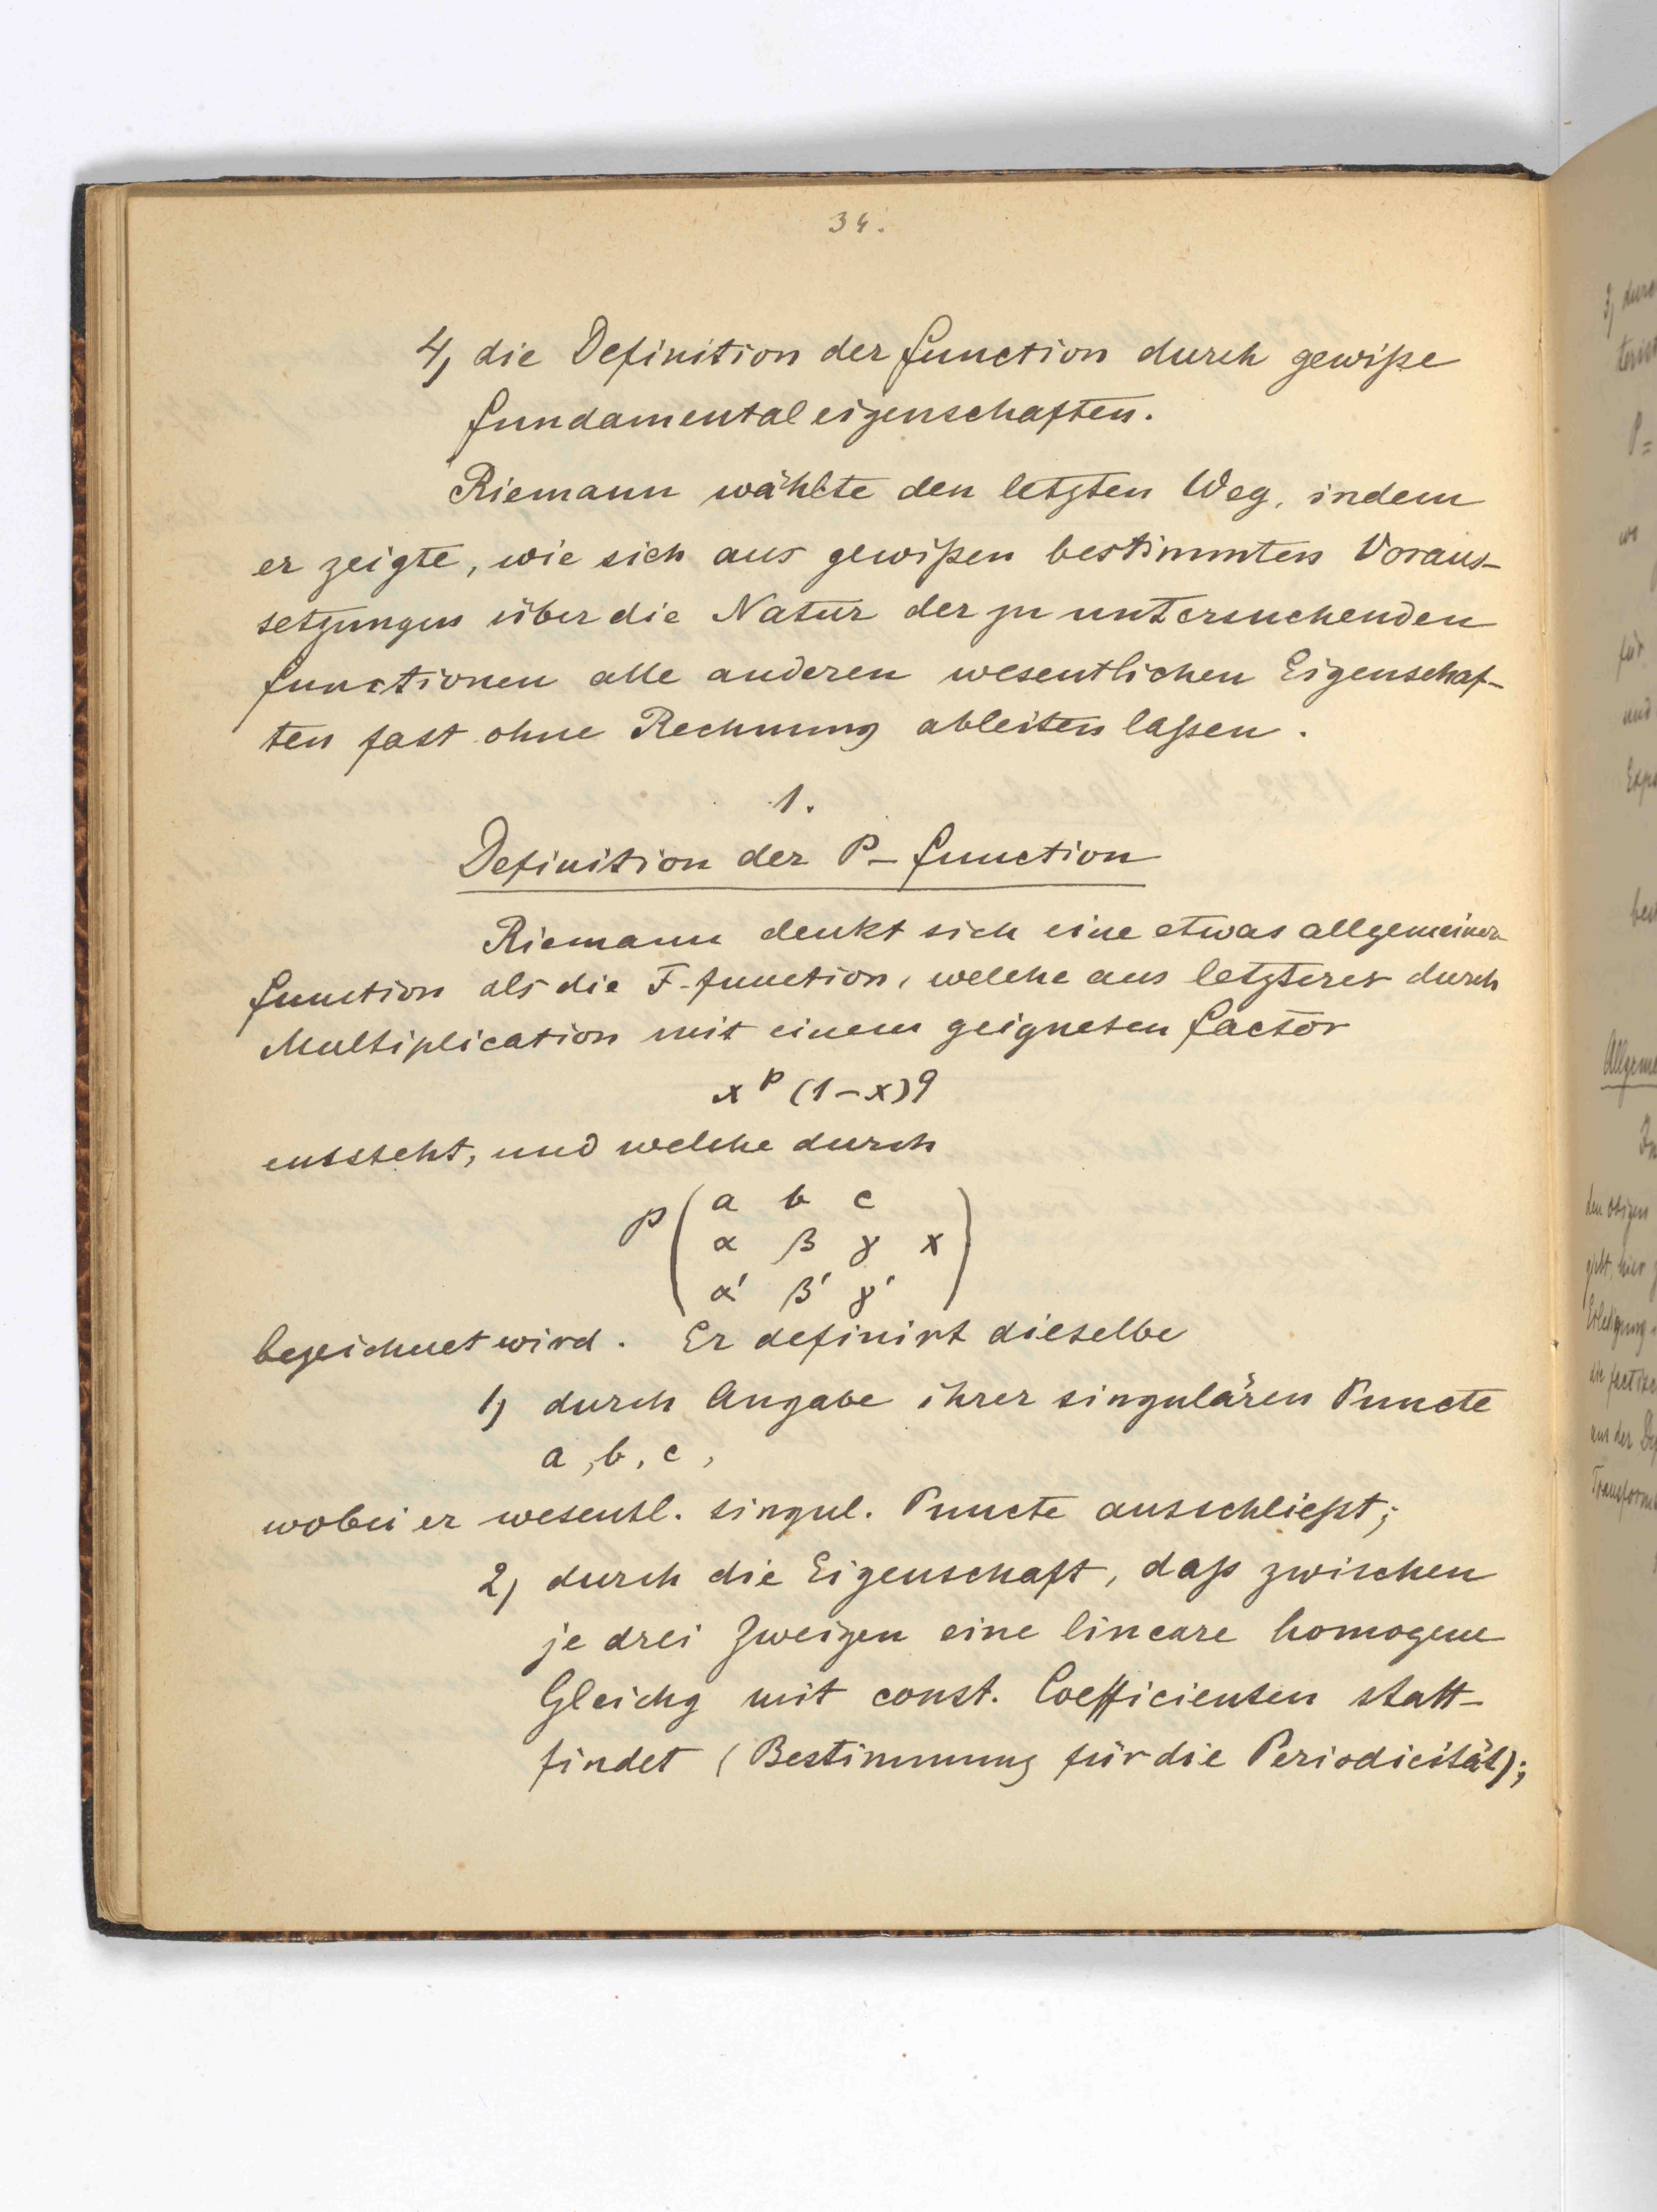 34.
4, die Definition der Function durch gewiße
Fundamentaleigenschaften.
Riemann wählte den letzten Weg, indem
er zeigte, wie sich aus gewißen bestimmten Voraus-
setzungen über die Natur der zu untersuchenden
Functionen alle anderen wesentlichen Eigenschaf-
ten fast ohne Rechnung ableiten laßen.
1.
Definition der P-Function
Riemann denkt sich eine etwas allgemeinere
Function als die F-Function, welche aus letzterer durch
Multiplication mit einem geigneten Factor
x^p (1-x)^q
entsteht, und welche durch
P ( a b c
α β γ x )
α' β' γ'
bezeichnet wird. Er definirt dieselbe
1, durch Angabe ihrer singulären Puncte
a, b, c,
wobei er wesentl. singul. Puncte ausschließt;
2, durch die Eigenschaft, daß zwischen
je drei Zweigen eine lineare homogene
Gleichg mit const. Coefficienten statt-
findet (Bestimmung für die Periodicität);
3, durc
P=
wo
für
und
Expo
Allgeme
den obigen
gilt, hier
Erledigung
die factisc
aus der De
Transform